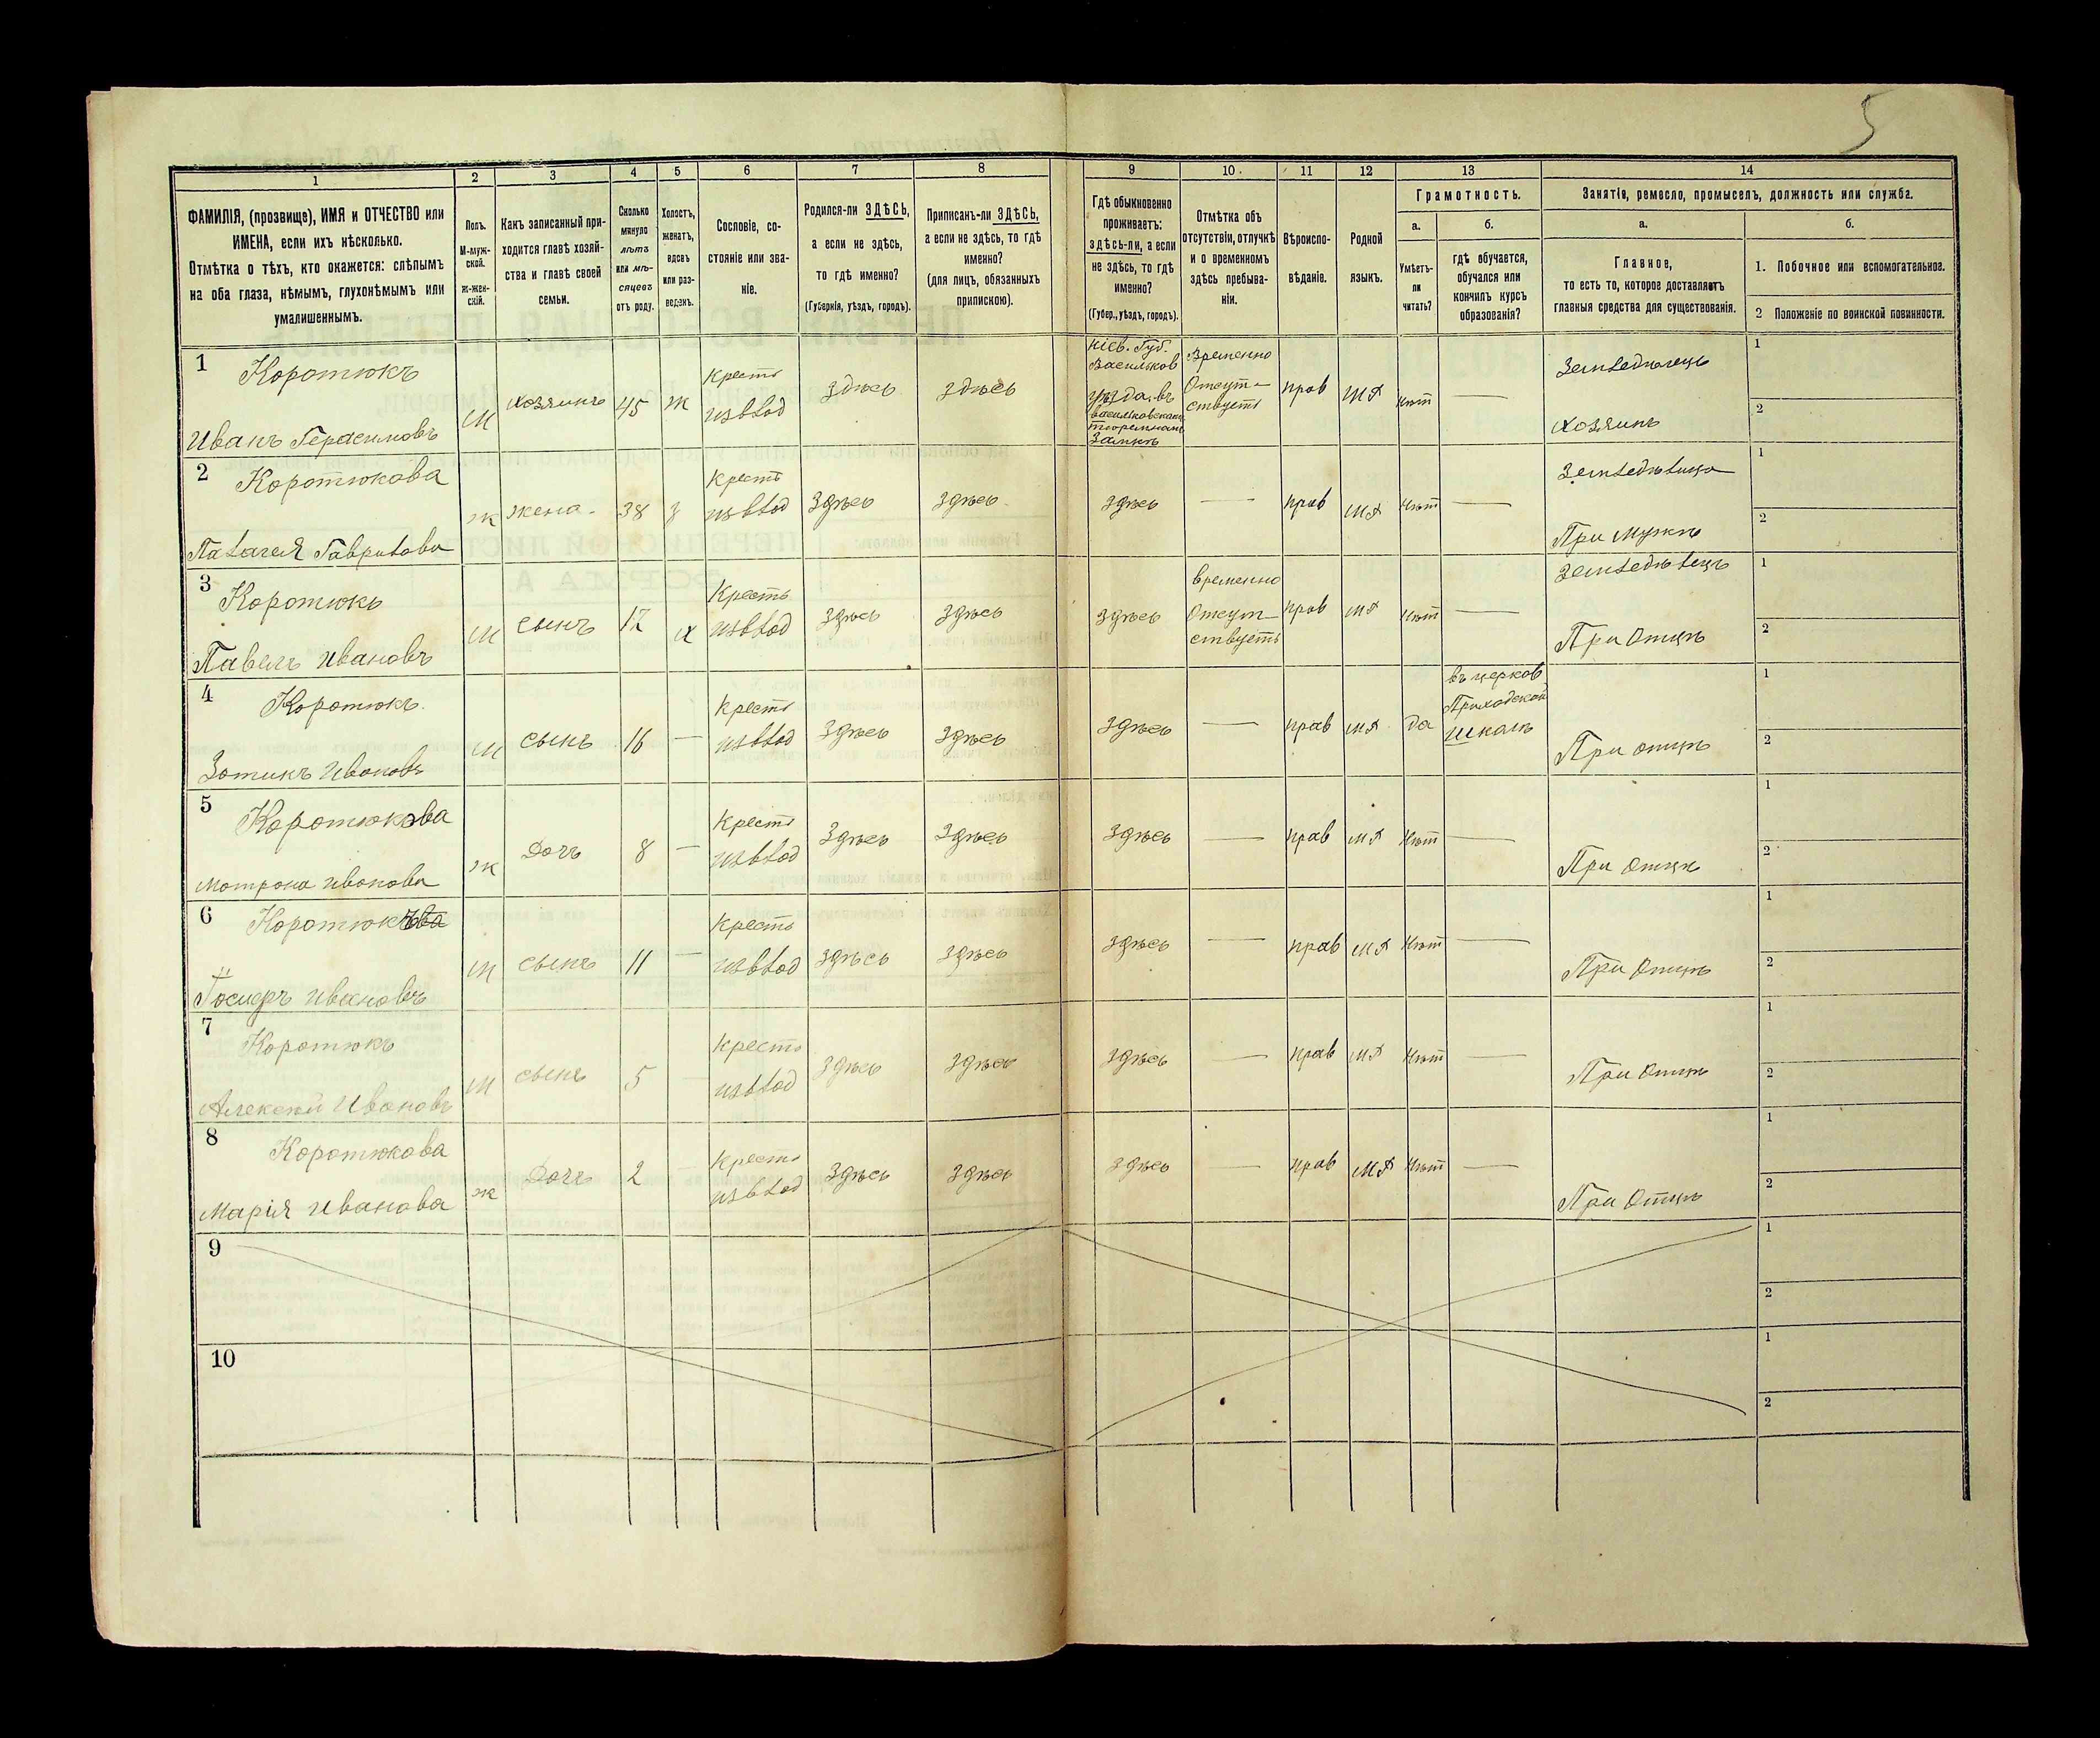 5
1 2 3 4 5 6 7 8 9 10. 11 12 13 14
ФАМИЛІЯ, (прозвище), ИМЯ и ОТЧЕСТВО или
ИМЕНА, если ихъ нѣсколько.
Отмѣтка о тѣхъ, кто окажется: слѣпымъ
на оба глаза, нѣмымъ, глухонѣмымъ или
умалишеннымъ.
Полъ.
М-муж-
ской.
Ж-жен-
скій.
Какъ записанный при-
ходится главѣ хозяй-
ства и главѣ своей
семьи.
Сколько
минуло
лѣтъ
или мѣ-
сяцевъ
отъ роду.
Холостъ,
женатъ,
вдовъ
или раз-
веденъ.
Сословіе, со-
стояніе или зва-
ніе.
Родился-ли ЗДѢСЬ,
а если не здѣсь,
то гдѣ именно?
(Губернія, уѣздъ, городъ).
Приписанъ-ли ЗДѢСЬ,
а если не здѣсь, то гдѣ
именно?
(для лицъ, обязанныхъ
припискою).
Гдѣ обыкновенно
проживаетъ:
здѣсь-ли, а если
не здѣсь, то гдѣ
именно?
(Губер., уѣздъ, городъ).
Отмѣтка объ
отсутствіи, отлучкѣ
и о временномъ
здѣсь пребыва-
ніи.
Вѣроиспо-
вѣданіе.
Родной
языкъ.
Грамотность.
а.
Умѣетъ-
ли
читать?
б.
гдѣ обучается,
обучался или
кончилъ курсъ
образованія?
Занятіе, ремесло, промыселъ, должность или служба.
а.
Главное,
то есть то, которое доставляетъ
главныя средства для существованія.
б.
1. Побочное или вспомогательное.
2 Положеніе по воинской повинности.
1
Коротюкъ
Иванъ Герасимовъ
м
хозяинъ
45
ж
Крестъ
изъ вод
здѣсь
здѣсь
Кіев. Губ.
Васильков
уѣзда, въ
васильковскомъ
тюремномъ
замкѣ
Временно
Отсут-
ствуетъ
прав
мд
нѣт
—
Земледѣлецъ
хозяинъ
1
2
2
Коротюкова
Палагея Гаврилова
ж
жена
38
з
Крестъ
изъ вод
здѣсь
здѣсь
здѣсь
—
прав
мд
нѣт
—
Земледѣлица
При мужѣ
1
2
3
Коротюкъ
Павелъ Ивановъ
м
сынъ
17
х
Крестъ
изъ вод
здѣсь
здѣсь
здѣсь
временно
Отсут-
ствуетъ
прав
мд
нѣт
—
Земледѣлецъ
При Отцѣ
1
2
4
Коротюкъ
Зотикъ Ивановъ
м
сынъ
16
—
Крестъ
изъ вод
здѣсь
здѣсь
здѣсь
—
прав
мд
да
въ церков
Приходской
школѣ
При отцѣ
1
2
5
Коротюкова
Мотрона Иванова
ж
Дочь
8
—
Крестъ
изъ вод
здѣсь
здѣсь
здѣсь
—
прав
мд
нѣт
—
При Отцѣ
1
2
6
Коротюкъ
Ивановъ
м
сынъ
11
—
Крестъ
изъ вод
здѣсь
здѣсь
здѣсь
—
прав
мд
нѣт
—
При Отцѣ
1
2
7
Коротюкъ
Алексѣй Ивановъ
м
сынъ
5
—
Крестъ
изъ вод
здѣсь
здѣсь
здѣсь
—
прав
мд
нѣт
—
При Отцѣ
1
2
8
Коротюкова
Марія Иванова
ж
Дочь
2
—
Крестъ
изъ вод
здѣсь
здѣсь
здѣсь
—
прав
мд
нѣт
—
При Отцѣ
1
2
9
1
2
10
1
2